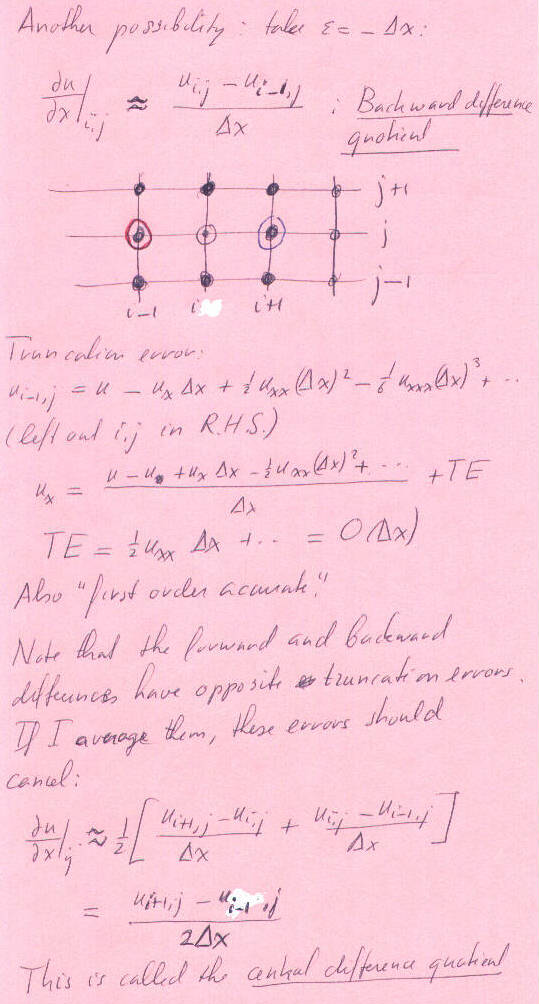 Another possibility: take ε = - Δx:
∂u/∂x|i,j ≈ (ui,j - ui-1,j)/Δx ; Backward difference
quotient
j+1
j
j-1
i-1 i i+1
Truncation error:
ui-1,j = u - ux Δx + ½ uxx (Δx)² - 1/6 uxxx (Δx)³ + ..
(left out i,j in R.H.S.)
ux = (u - u + ux Δx - ½ uxx (Δx)² + ...)/Δx + TE
TE = ½ uxx Δx + .. = O(Δx)
Also "first order accurate."
Note that the forward and backward
differences have opposite truncation errors.
If I average them, these errors should
cancel:
∂u/∂x|ij ≈ ½ [ (ui+1,j - ui,j)/Δx + (ui,j - ui-1,j)/Δx ]
= (ui+1,j - ui-1,j)/2Δx
This is called the central difference quotient